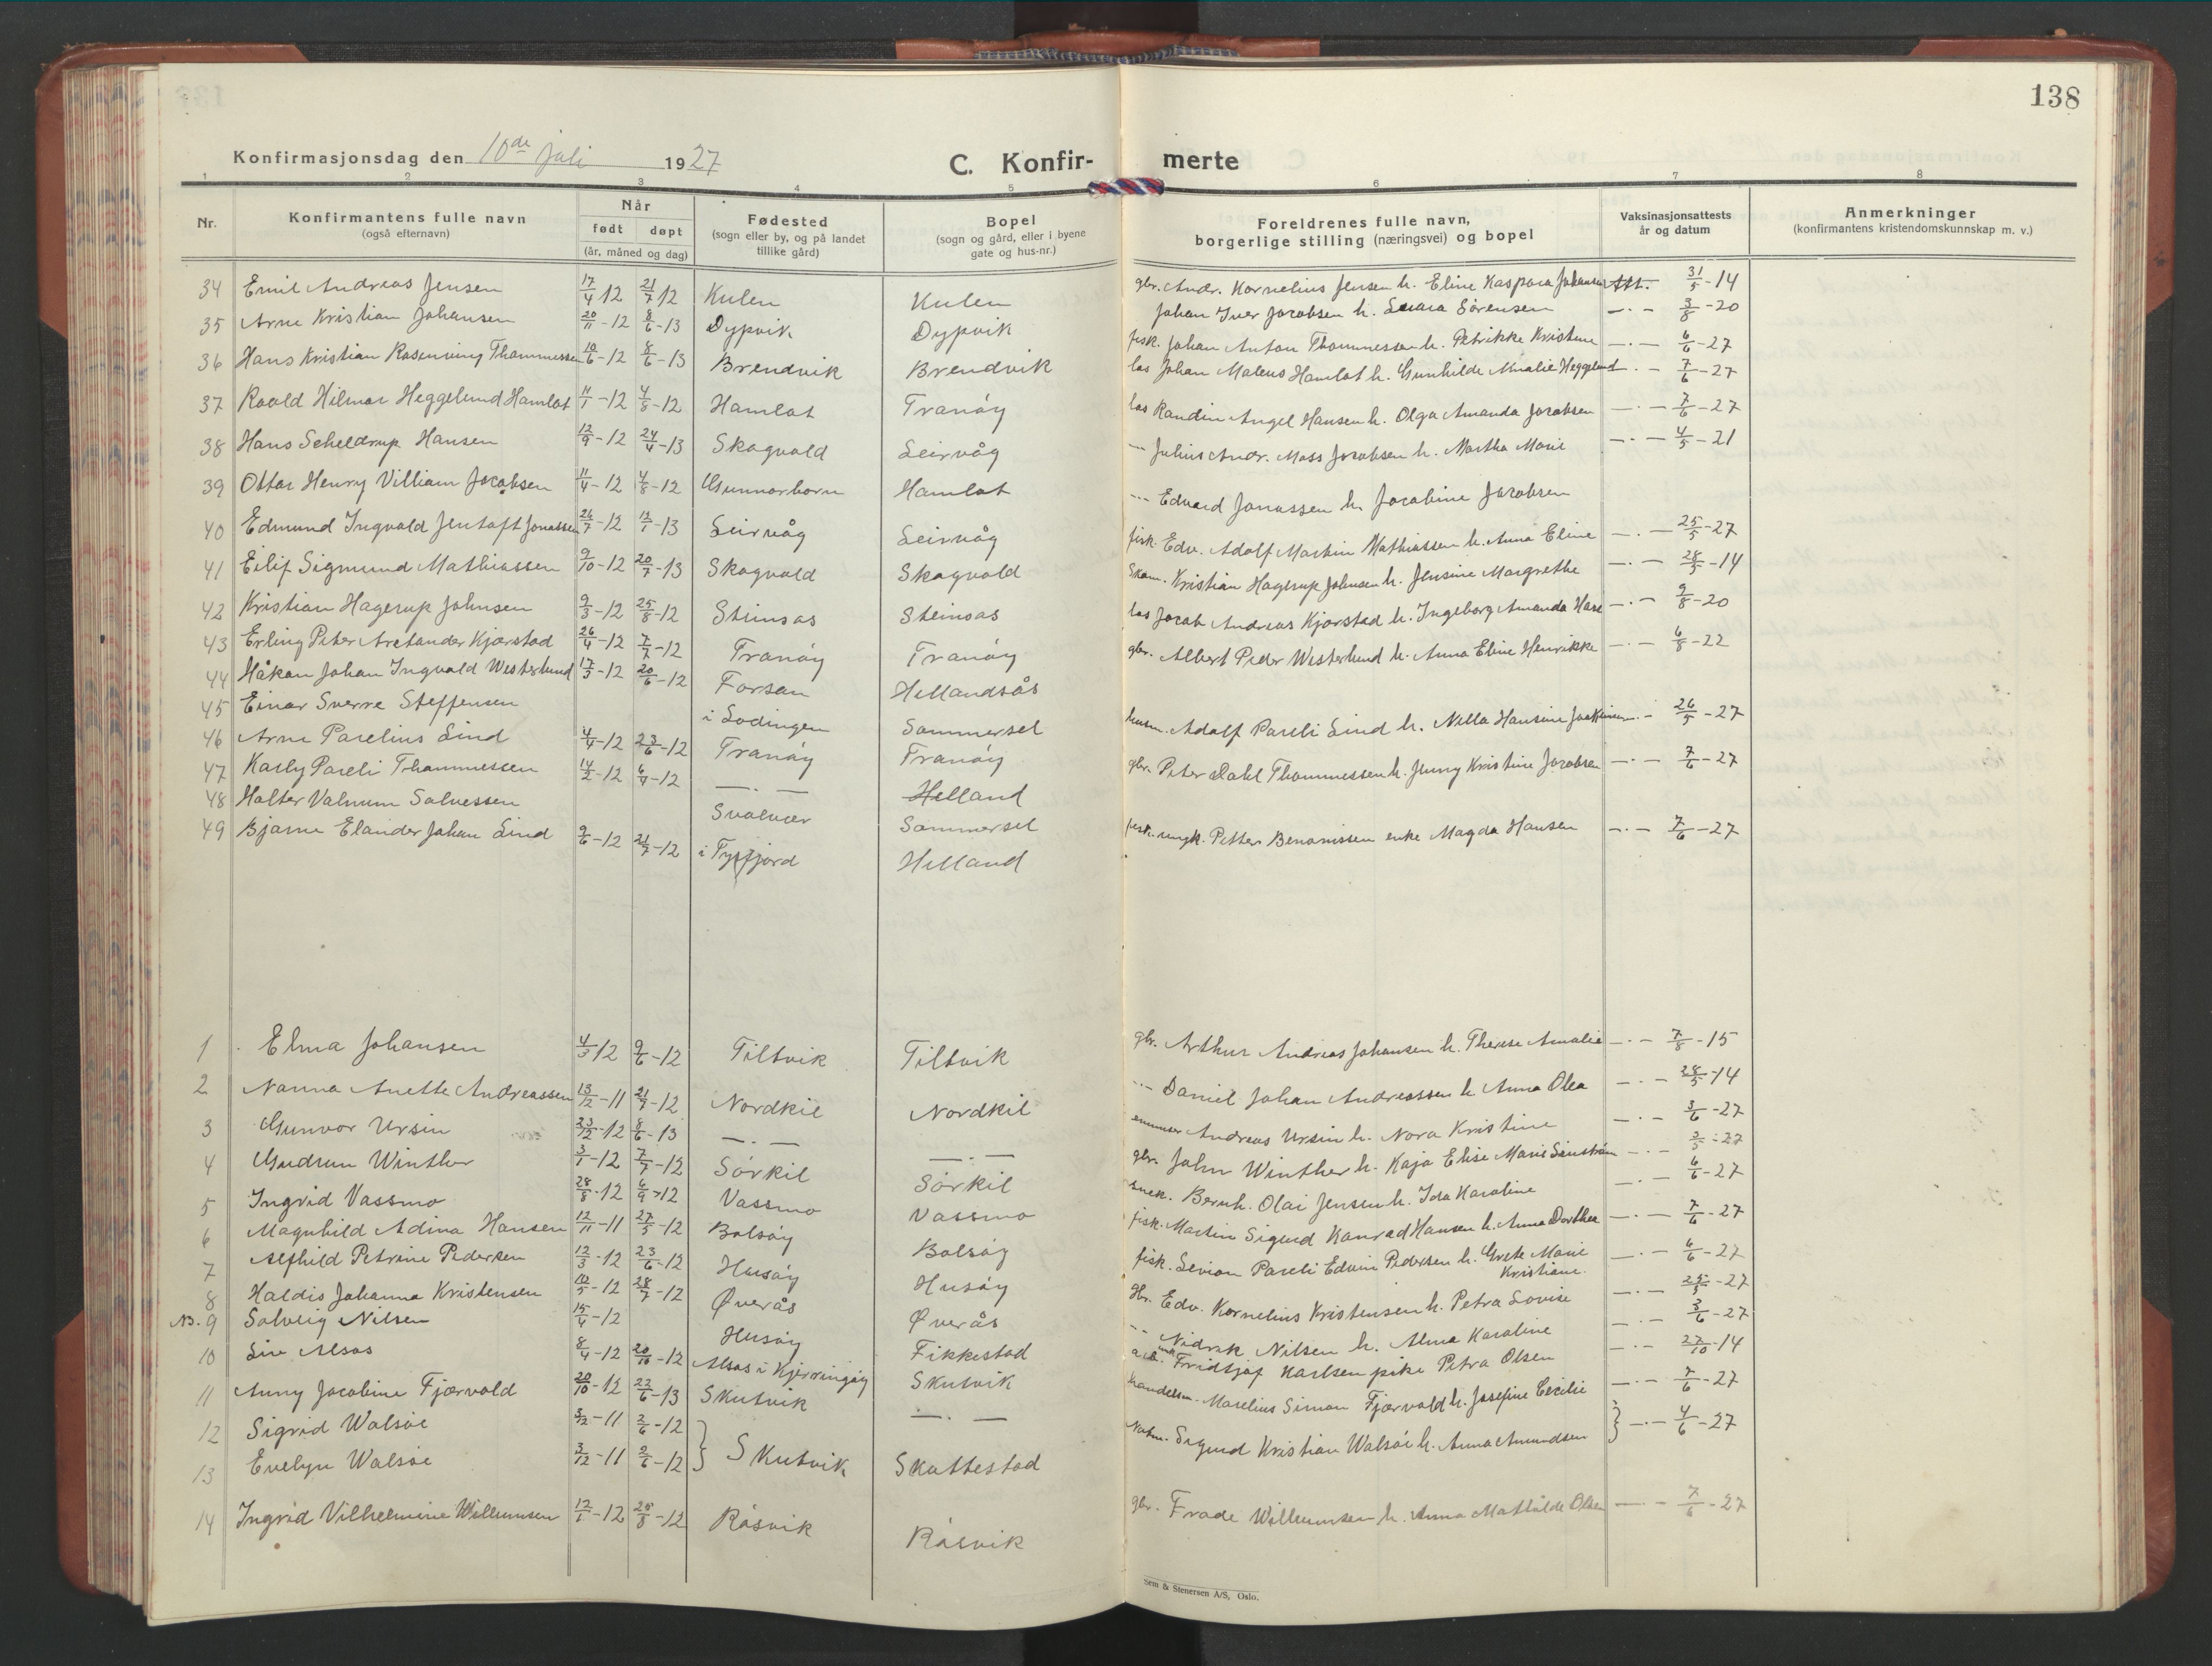 138
Konfirmasjonsdag den 10de juli 1927
C. Konfir-
merte
1 2 3 4 5 6 7 8
Nr.
Konfirmantens fulle navn
(også efternavn)
Når
født døpt
(år, måned og dag)
Fødested
(sogn eller by, og på landet
tillike gård)
Bopel
(sogn og gård, eller i byene
gate og hus-nr.)
Foreldrenes fulle navn,
borgerlige stilling (næringsvei) og bopel
Vaksinasjonsattests
år og datum
Anmerkninger
(konfirmantens kristendomskunnskap m. v.)
34 Emil Andreas Jensen 17/4 12 21/7 12 Kulen Kulen gbr. Andr. Kornelius Jensen h. Eline Kaspara Johansen Att. 31/5-14
35 Arne Kristian Johansen 20/11-12 8/6-13 Dypvik Dypvik Johan Iver Jacobsen h. Sørensen —·— 3/8-20
36 Hans Kristian Rosenving Thommessen 10/6-12 8/6-13 Brendvik Brendvik fisk. Johan Anton Thommessen h. Petrikke Kristine —·— 6/6-27
37 Roald Hilmar Heggelund Hamlot 11/1-12 4/8-12 Hamlot Tranøy los Johan Mateus Hamlot h. Gunhilde Amalie Heggelund —·— 7/6-27
38 Hans Scheldrup Hansen 12/9-12 24/4-13 Skogvold Leirvåg los Randin Angel Hansen h. Olga Amanda Jacobsen —·— 7/6-27
39 Ottar Henry Villiam Jacobsen 11/4-12 4/8-12 Gunnarborn Hamlot — Julius Andr. Moss Jacobsen h. Martha Marie —·— 4/5-21
40 Edmund Ingvald Jentoft Jonassen 26/7-12 12/1-13 Leirvåg Leirvåg — Edvard Jonassen h. Jacobine Jacobsen
41 Eilif Sigmund Mathiassen 9/10-12 20/7-13 Skogvold Skogvold fisk. Edv. Adolf Martin Mathiassen h. Anna Eline —·— 25/5-27
42 Kristian Hagerup Johnsen 9/3-12 25/8-12 Steinsas Steinsas Skom. Kristian Hagerup Johnsen h. Jensine Margrethe —·— 28/5-14
43 Erling Peter Arctander Kjørstad 26/4-12 7/7-12 Tranøy Tranøy los Jacob Andreas Kjørstad h. Ingeborg Amanda —·— 9/8-20
44 Håkon Johan Ingvald Westerlund 17/3-12 20/6-12 Forsan Hellandsås gbr. Albert Peder Westerlund h. Anna Eline Henrikke —·— 6/8-22
45 Einar Sverre Steffensen i Lødingen Sommersel
46 Arne Parelius Lind 4/4-12 23/6-12 Tranøy Tranøy husm. Adolf Pareli Lind h. Nilla Hansine —·— 26/5-27
47 Karly Pareli Thommessen 14/2-12 6/4-12 —·— Helland gbr. Peter Dahl Thommessen h. Jenny Kristine Jacobsen —·— 7/6-27
48 Halter Valnum Salvessen Svolvær Sommersel
49 Bjarne Elander Johan Lind 9/6-12 21/7-12 i Tysfjord Helland fisk. ungk. Petter Benonissen enke Magda Hansen —·— 7/6-27
1 Elma Johansen 4/3 12 9/6-12 Tiltvik Tiltvik gbr. Arthur Andreas Johansen h. Therese Amalie —·— 7/8-15
2 Nanna Anette Andreassen 13/12-11 21/7-12 Nordkil Nordkil — Daniel Johan Andreassen h. Anna Olea —·— 28/5-14
3 Gunvor Ursin 23/12-12 8/6-13 —·— —·— Andreas Ursin h. Nora Kristine —·— 3/6-27
4 Gudrun Winther 3/1-12 7/7-12 Sørkil Sørkil gbr. John Winther h. Kaja Elise Marie —·— 3/5-27
5 Ingrid Vassmo 28/8-12 6/9-12 Vassmo Vassmo snek. Bernh. Olai Jensen h. Ida Karoline —·— 6/6-27
6 Magnhild Adina Hansen 12/11-11 27/5-12 Balsøy Balsøy fisk. Martin Sigurd Konrad Hansen h. Anna Dorthea —·— 7/6-27
7 Alfhild Petrine Pedersen 12/3-12 23/6-12 Husøy Husøy fisk. Sevion Pareli Edvin Pedersen h. Grete Marie Kristiane —·— 6/6-27
8 Haldis Johanna Kristensen 10/5-12 28/7-12 Øverås Øverås Gbr. Edv. Kornelius Kristensen h. Petra Lovise —·— 25/5-27
NB. 9 Solveig Nilsen 15/4-12 Husøy Fikkestad — Nidrik Nilsen h. Alma Karoline —·— 3/6-27
10 Liv Alsos 8/4-12 20/10-12 Alsos i Kjerringøy Skutvik Fridtjof Karlsen pike Petra Olsen —·— 27/10-14
11 Anny Jacobine Fjærvold 20/10-12 22/6-13 Skutvik —·— Handelsm. Marelius Simon Fjærvold h. Josefine Cecilie —·— 7/6-27
12 Sigrid Walsøe 3/12-11 2/6-12
13 Evelyn Walsøe 3/12-11 2/6-12 } Skutvik Skottestad Sigurd Kristian Walsøe h. Anna Amundsen } —·— 4/6-27
14 Ingrid Vilhelmine Willumsen 12/1-12 25/8-12 Råsvik Råsvik gbr. Frode Willumsen h. Anna Mathilde Olsen —·— 7/6-27
Sem & Stenersen A/S, Oslo.